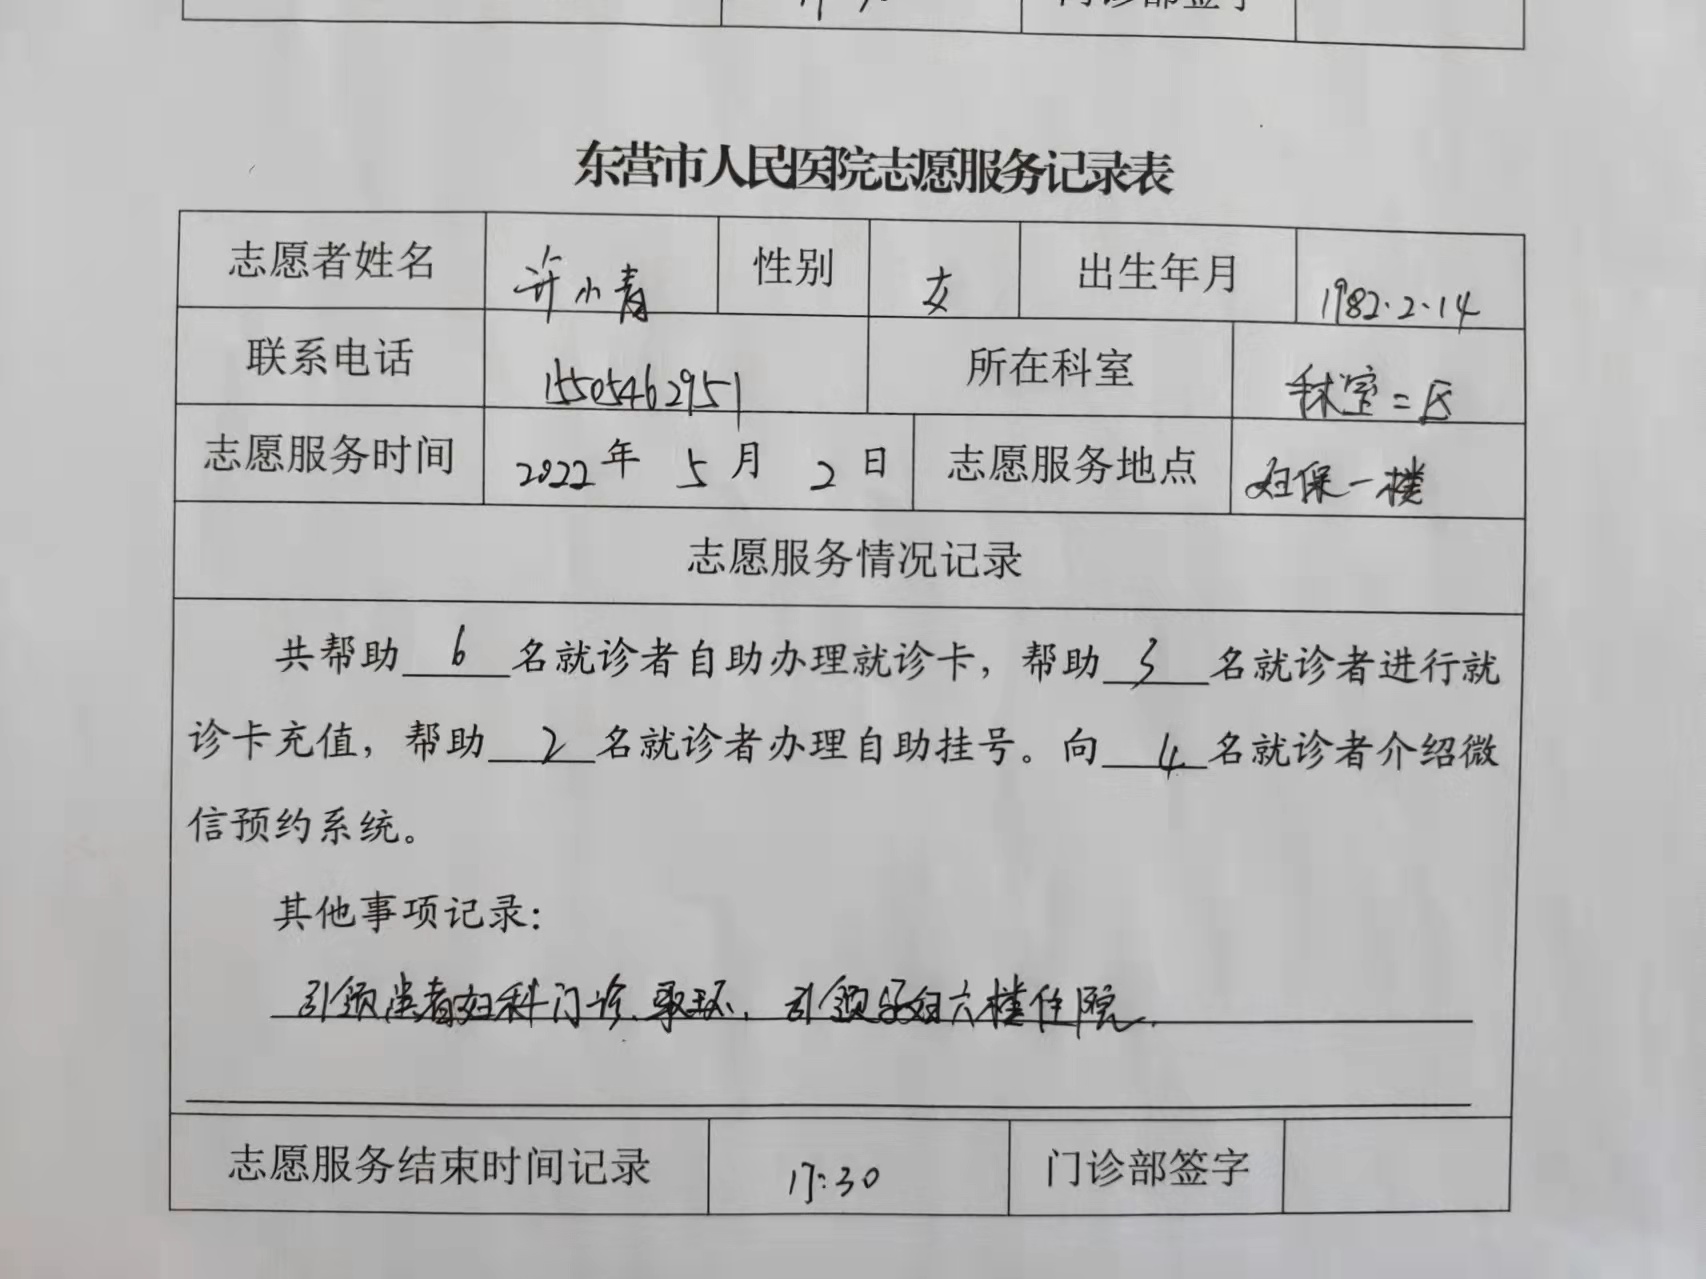 门诊部签字
东营市人民医院志愿服务记录表
志愿者姓名 许小青 性别 女 出生年月 1982.2.14
联系电话 15505462951 所在科室 二区
志愿服务时间 2022年 5月 2日 志愿服务地点 妇保一楼
志愿服务情况记录
共帮助 6 名就诊者自助办理就诊卡，帮助 3 名就诊者进行就
诊卡充值，帮助 2 名就诊者办理自助挂号。向 4 名就诊者介绍微
信预约系统。
其他事项记录：
引领患者妇科门诊、取环，引领孕妇六楼住院.
志愿服务结束时间记录 17:30 门诊部签字